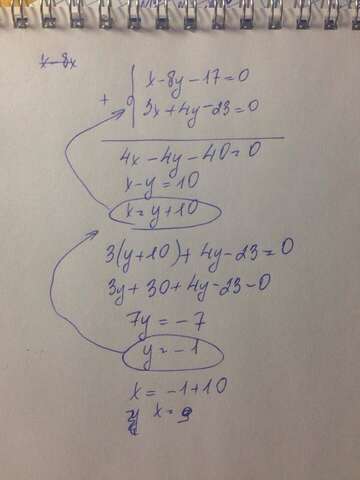 x-8x
x-8y-17=0
+ 3x+4y-23=0
4x-4y-40=0
x-y=10
x=y+10
3(y+10)+4y-23=0
3y+30+4y-23-0
7y=-7
y=-1
x=-1+10
y x=9